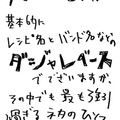 基本的に
レシピ名とバンド名などの
ダジャレベース
でございますが、
その中でも最も強引
過ぎるネタのひとつ